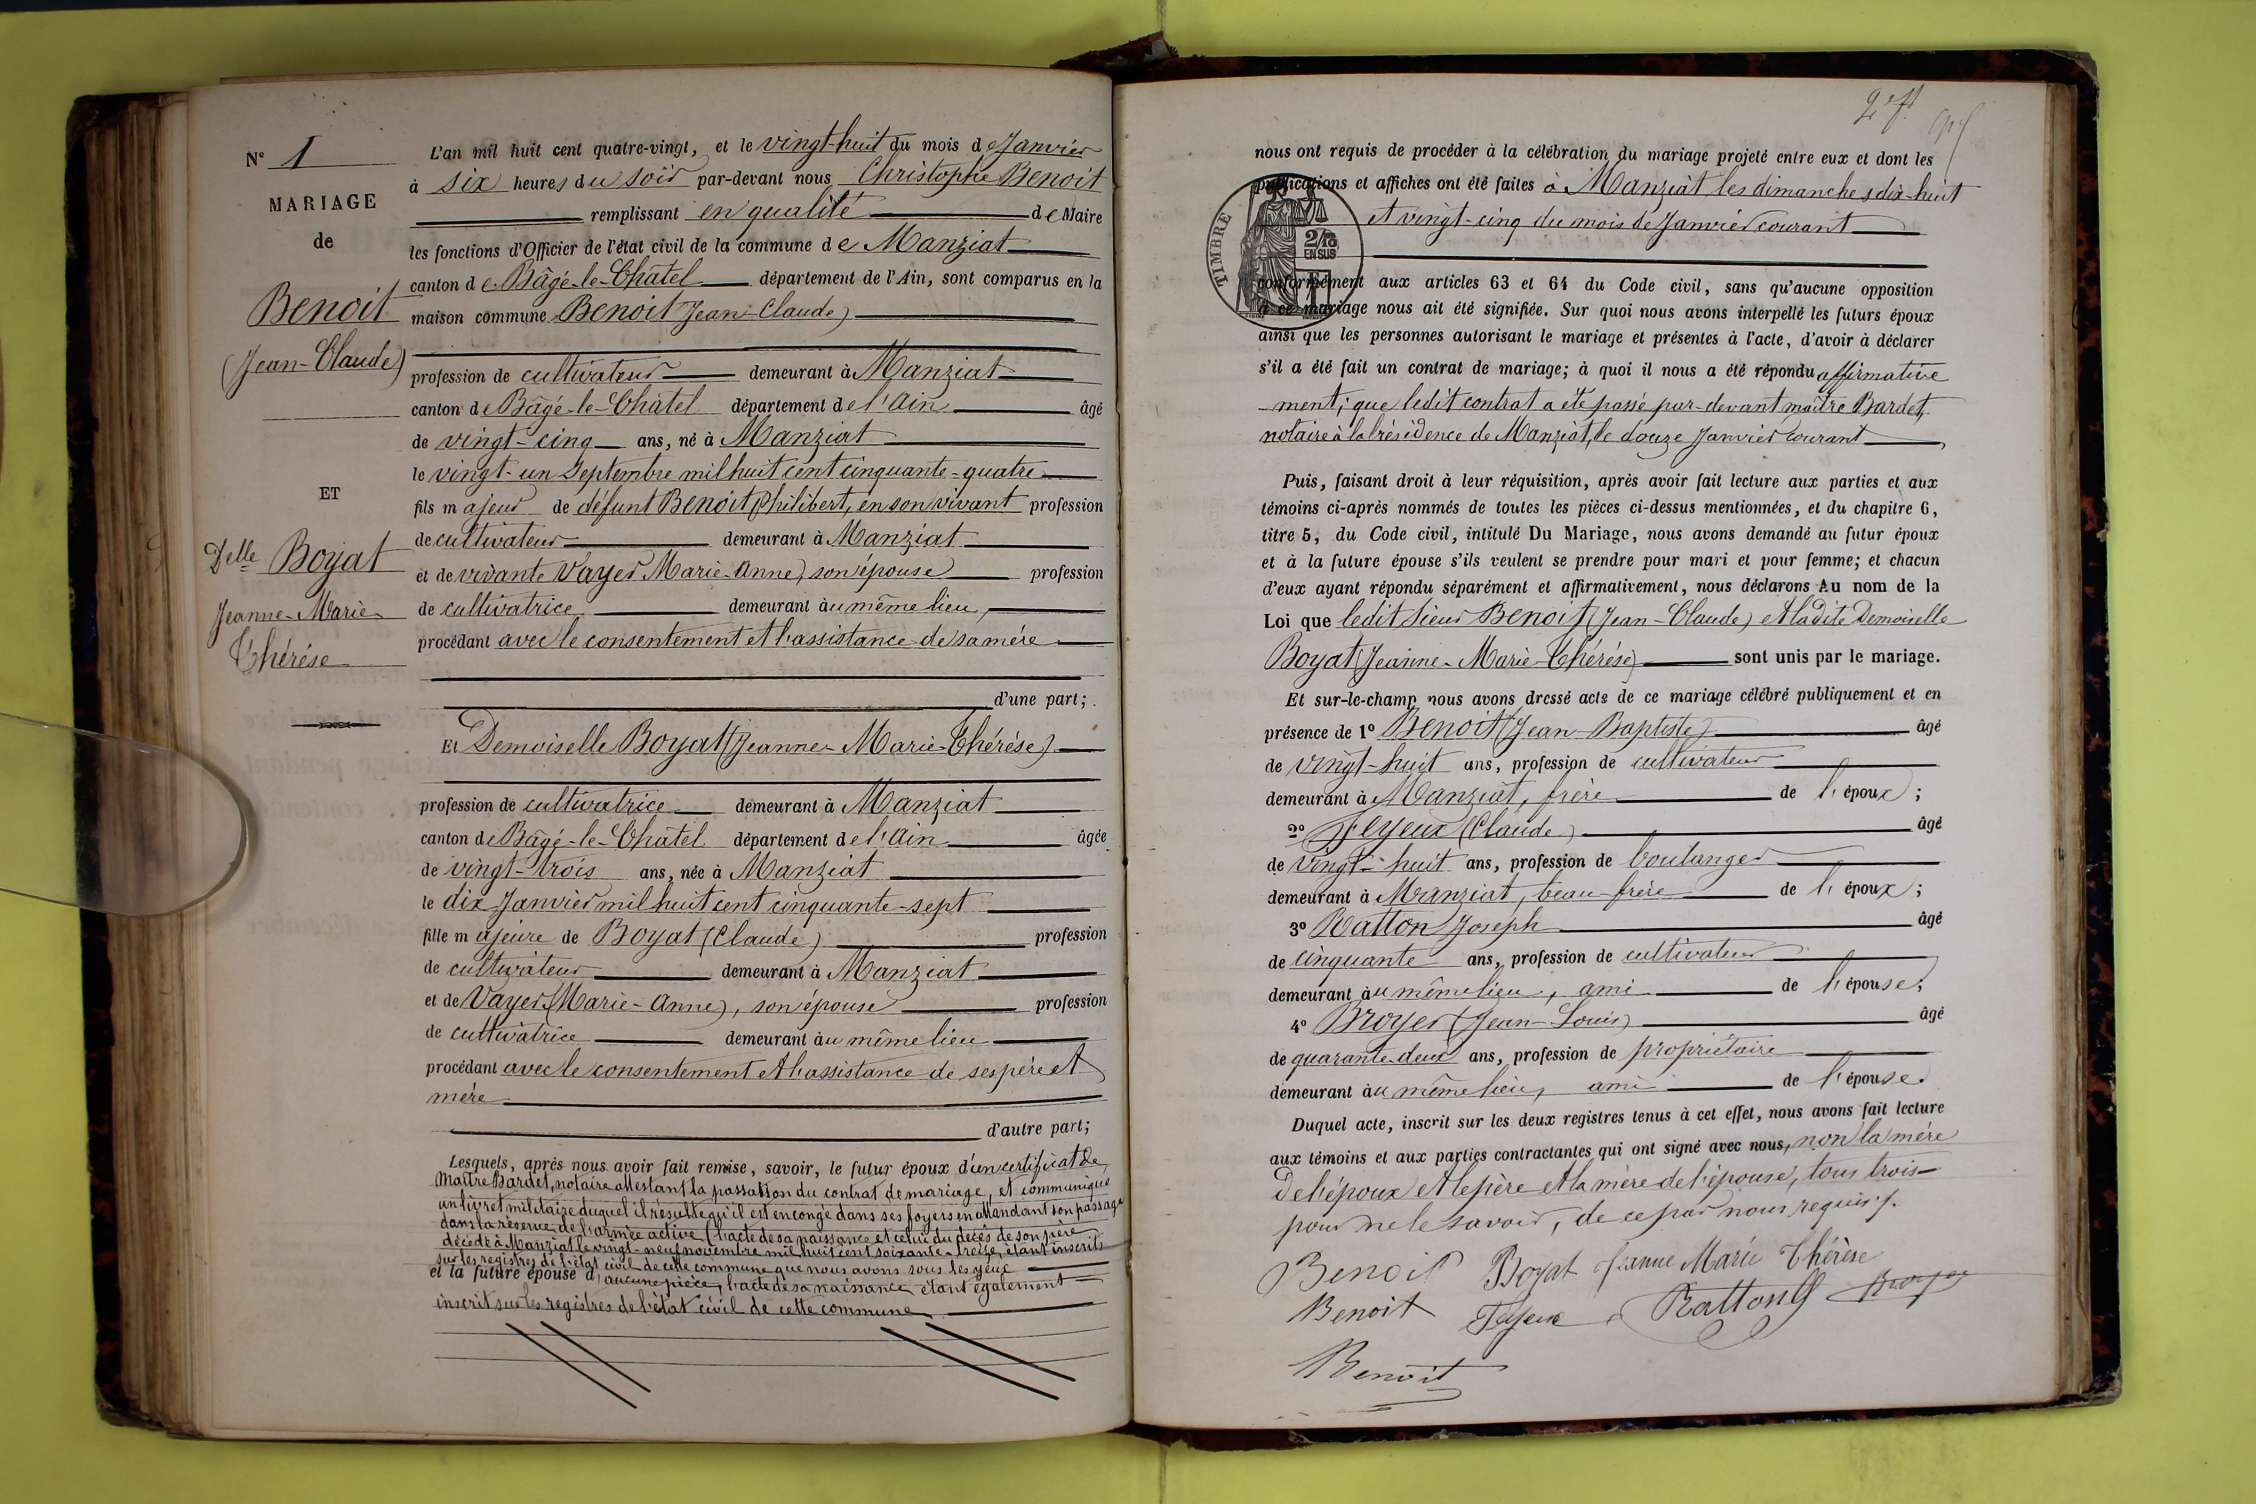 N° 1
MARIAGE
de
Benoit
(Jean-Claude)
ET
Delle Boyat
Jeanne-Marie-
Thérèse
L'an mil huit cent quatre-vingt, et le vingt-huit du mois de Janvier
à six heures du soir par-devant nous Christophe Benoit
remplissant en qualité de Maire
les fonctions d'Officier de l'état civil de la commune de Manziat
canton de Bâgé-le-Châtel département de l'Ain, sont comparus en la
maison commune Benoit Jean-Claude)
profession de cultivateur demeurant à Manziat
canton de Bâgé-le-Châtel département de l'Ain âgé
de vingt-cinq ans, né à Manziat
le vingt-un Septembre mil huit cent cinquante-quatre
fils majeur de défunt Benoit Philibert, en son vivant profession
de cultivateur demeurant à Manziat
et de vivante Vayer Marie-Anne, son épouse profession
de cultivatrice demeurant au même lieu,
procédant avec le consentement et l'assistance de sa mére
d'une part;
Et Demoiselle Boyat (Jeanne-Marie-Thérése)
profession de cultivatrice demeurant à Manziat
canton de Bâgé-le-Châtel département de l'Ain âgée
de vingt-trois ans, née à Manziat
le dix Janvier mil huit cent cinquante-sept
fille majeure de Boyat (Claude) profession
de cultivateur demeurant à Manziat
et de Vayer (Marie-Anne), son épouse profession
de cultivatrice demeurant au même lieu
procédant avec le consentement et l'assistance de ses père et
mére
d'autre part;
Lesquels, après nous avoir fait remise, savoir, le futur époux d'un certificat de
Maître Bardet, notaire attestant la passation du contrat de mariage, et communiqué
un livret militaire duquel il résulte qu'il est en congé dans ses foyers en attendant son passage
dans la réserve de l'armée active (l'acte de sa naissance et celui du décès de son père
décédé à Manziat le vingt-neuf novembre mil huit cent soixante-treize, étant inscrits
sur les registres de l'état civil de cette commune que nous avons sous les yeux
et la future épouse d'aucune pièce, l'acte de sa naissance étant également
inscrit sur les registres de l'état civil de cette commune
2 ef
nous ont requis de procéder à la célébration du mariage projeté entre eux et dont les
publications et affiches ont été faites à Manziat les dimanches dix-huit
et vingt-cinq du mois de Janvier courant
TIMBRE
2/10
EN SUS
conformément aux articles 63 et 64 du Code civil, sans qu'aucune opposition
à ce mariage nous ait été signifiée. Sur quoi nous avons interpellé les futurs époux
ainsi que les personnes autorisant le mariage et présentes à l'acte, d'avoir à déclarer
s'il a été fait un contrat de mariage; à quoi il nous a été répondu affirmative
ment; que ledit contrat a été passé par-devant maître Bardet,
notaire à la résidence de Manziat, le douze Janvier courant
Puis, faisant droit à leur réquisition, après avoir fait lecture aux parties et aux
témoins ci-après nommés de toutes les pièces ci-dessus mentionnées, et du chapitre 6,
titre 5, du Code civil, intitulé Du Mariage, nous avons demandé au futur époux
et à la future épouse s'ils veulent se prendre pour mari et pour femme; et chacun
d'eux ayant répondu séparément et affirmativement, nous déclarons Au nom de la
Loi que ledit Sieur Benoit (Jean-Claude) et ladite Demoiselle
Boyat (Jeanne-Marie-Thérése) sont unis par le mariage.
Et sur-le-champ nous avons dressé acte de ce mariage célébré publiquement et en
présence de 1° Benoit (Jean-Baptiste) âgé
de vingt-huit ans, profession de cultivateur
demeurant à Manziat, frère de l'époux;
2° Feyeux (Claude) âgé
de vingt-huit ans, profession de boulanger
demeurant à Manziat, beau-frère de l'époux;
3° Ratton Joseph âgé
de cinquante ans, profession de cultivateur
demeurant au même lieu, ami de l'épouse;
4° Broyer (Jean-Louis) âgé
de quarante-deux ans, profession de propriétaire
demeurant au même lieu, ami de l'épouse.
Duquel acte, inscrit sur les deux registres tenus à cet effet, nous avons fait lecture
aux témoins et aux parties contractantes qui ont signé avec nous, non la mére
de l'époux et le père et la mère de l'épouse, tous trois
pour ne le savoir, de ce par nous requis.
Benoit Boyat Jeanne Marie Thérèse
Benoit Feyeux Ratton Broyer
Benoit